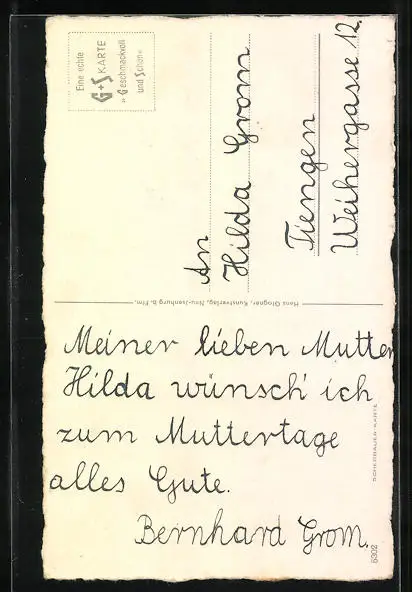 Eine echte
G+S KARTE
»Geschmackvoll
und Schön«
An
Hilda Grom
Tiengen
Weihergasse 12.
Hans Glogner, Kunstverlag, Neu-Isenburg b. Ffm.
Meiner lieben Mutter
Hilda wünsch' ich
zum Muttertage
alles Gute.
Bernhard Grom.
SCHERBAUER-KARTE
5302